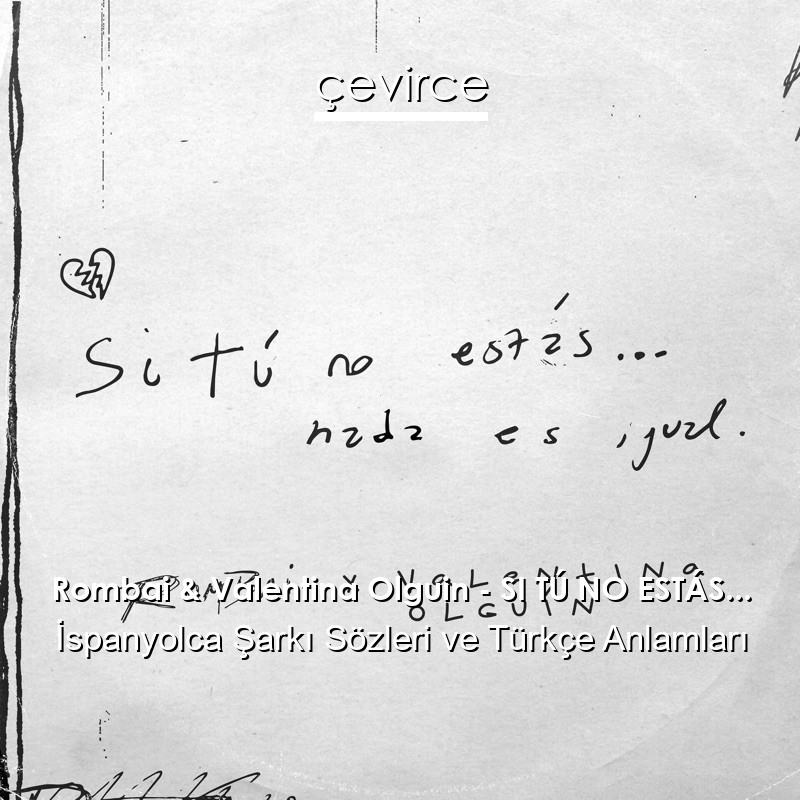 çevirce
Si tú no estás...
nada es igual.
RomBai y VaLeNtINa
OLGUIN
Rombai & Valentina Olguin - SI TÚ NO ESTÁS...
İspanyolca Şarkı Sözleri ve Türkçe Anlamları